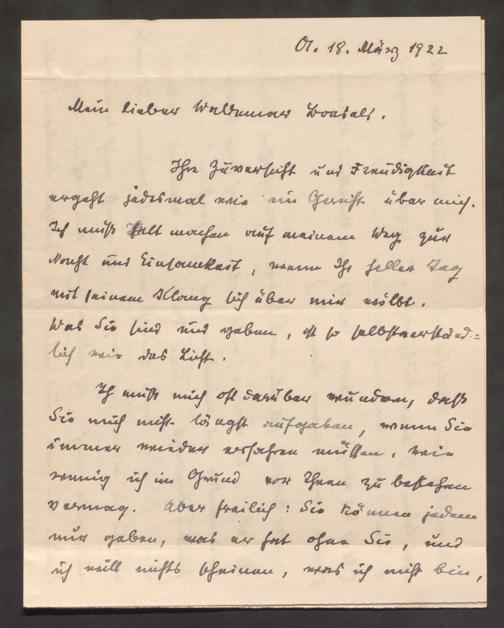 A. 18. März 1922
Mein lieber Waldemar Bonsels.
Ihre Zuversicht und Freudigkeit
ergeht jedesmal wie ein Gericht über mich.
Ich muß Halt machen auf meinem Weg zur
Nacht und Einsamkeit, wenn Ihr heller Tag
mit seinem Klang sich über mir wölbt.
Was Sie sind und geben, ist so selbstverständ-
lich wie das Licht.
Ich muß mich oft darüber wundern, daß
Sie mich nicht längst aufgaben, wenn Sie
immer wieder erfahren müssen, wie
wenig ich im Grund vor Ihnen zu bestehen
vermag. Aber freilich: Sie können jedem
nur geben, was er hat ohne Sie, und
ich will nichts scheinen, was ich nicht bin,